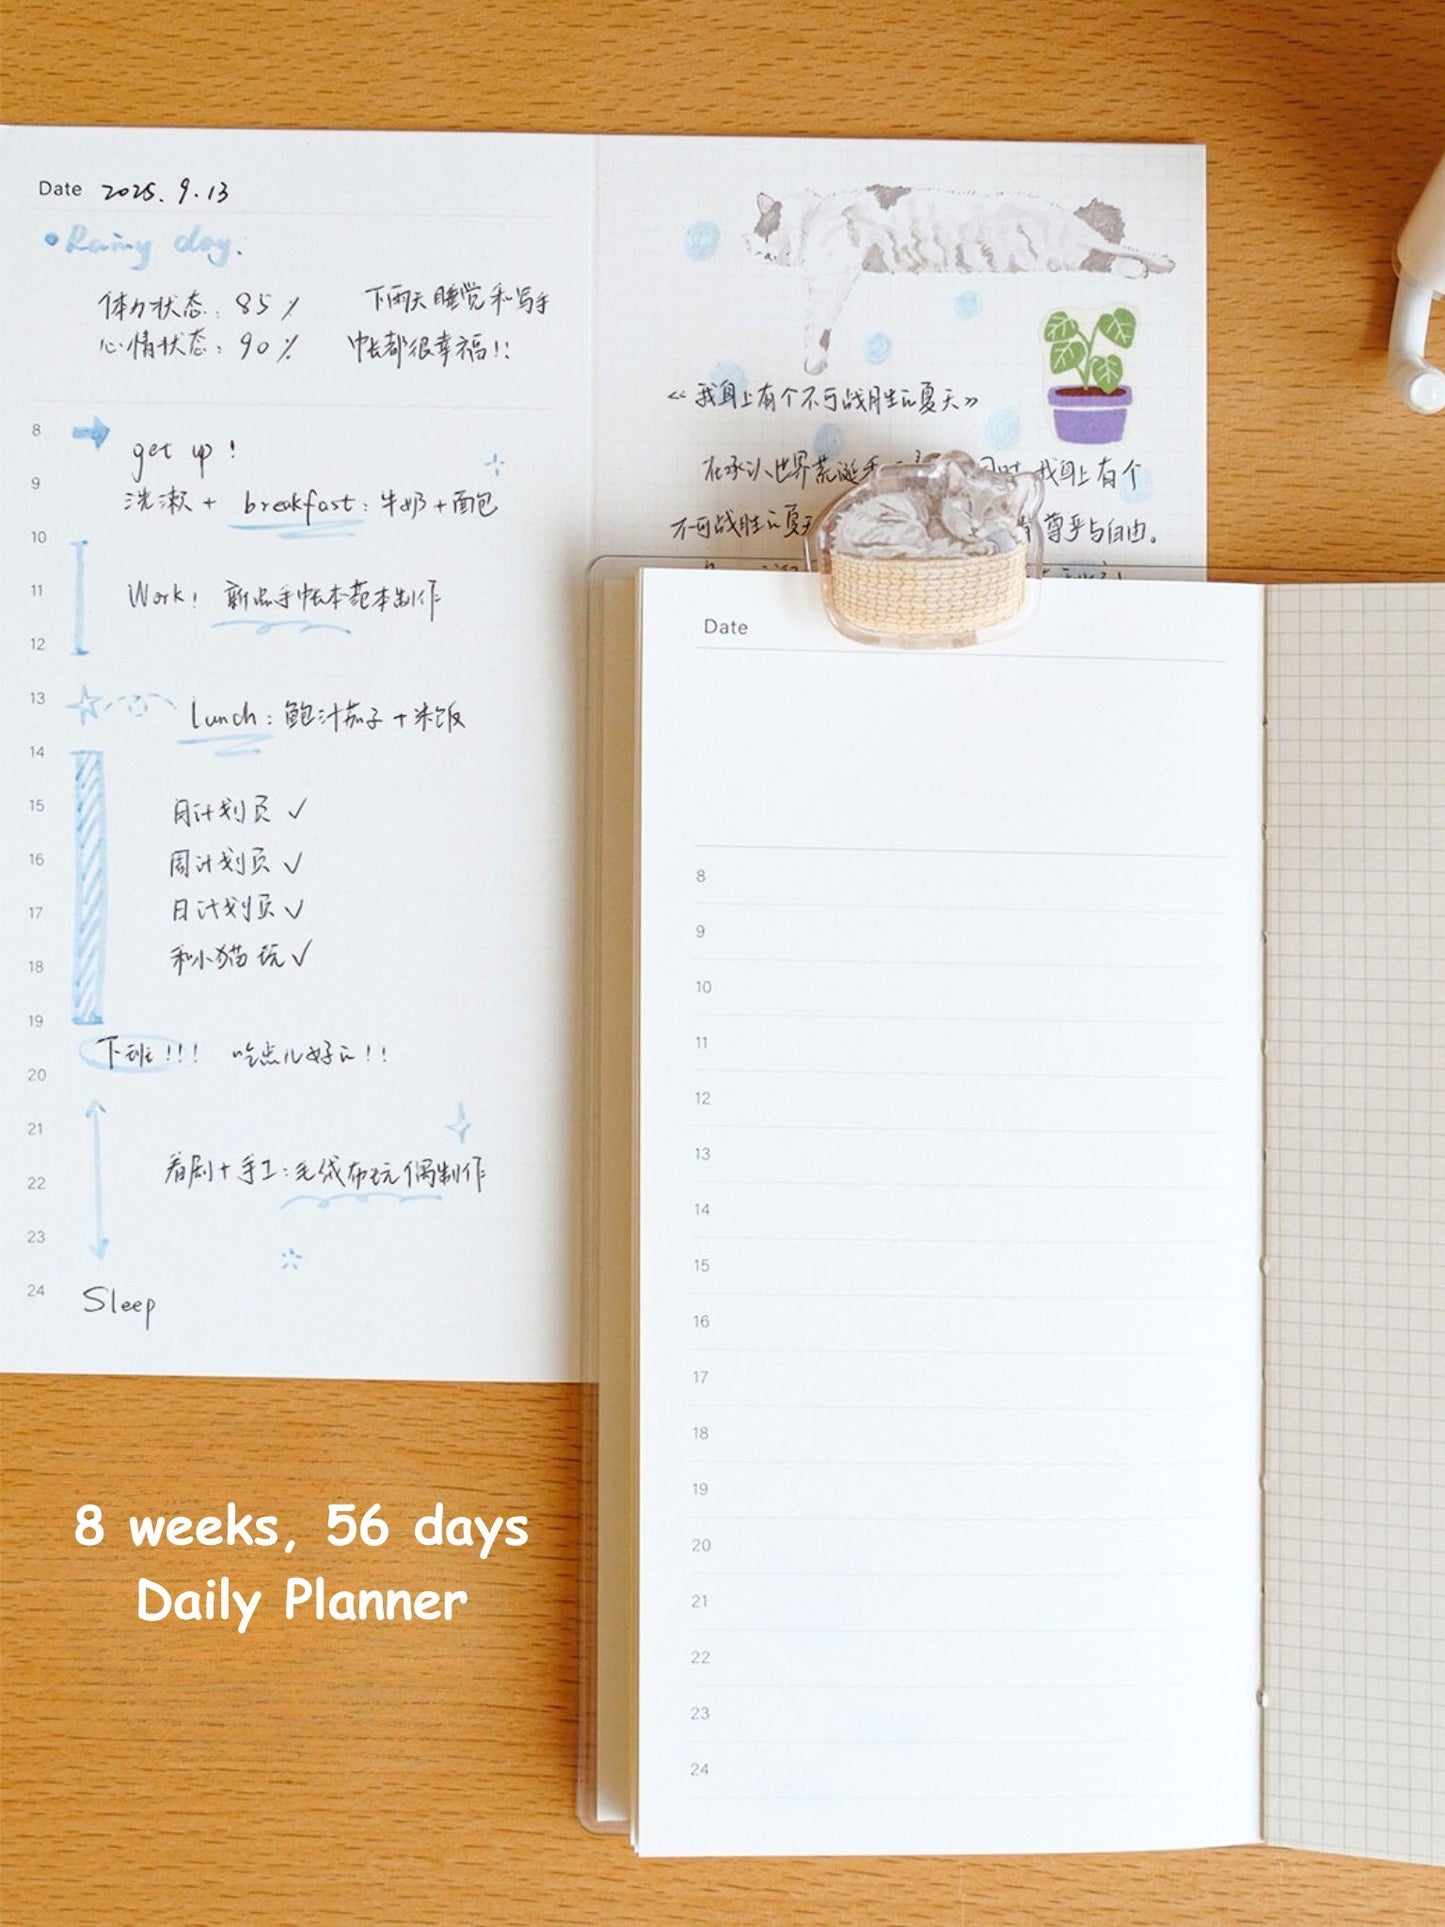 Date 2025. 9. 13
• Rainy day.
体力状态: 85% 下雨天睡觉和写手
心情状态: 90% 帐都很幸福!!
8
get up!
9
洗漱 + breakfast: 牛奶+面包
10
11 Work! 新品手帐本范本制作
12
13 Lunch: 鲍汁茄子+米饭
14
15 月计划页 ✓
16 周计划页 ✓
17 日计划页 ✓
18 和小猫玩 ✓
19
下班!!! 吃点儿好的!!
20
21
22 看剧+手工: 毛绒布玩偶制作
23
24 Sleep
《我身上有个不可战胜的夏天》
在承认世界荒诞 我身上有个
不可战胜的夏 尊严与自由。
Date
8
9
10
11
12
13
14
15
16
17
18
19
20
21
22
23
24
8 weeks, 56 days
Daily Planner